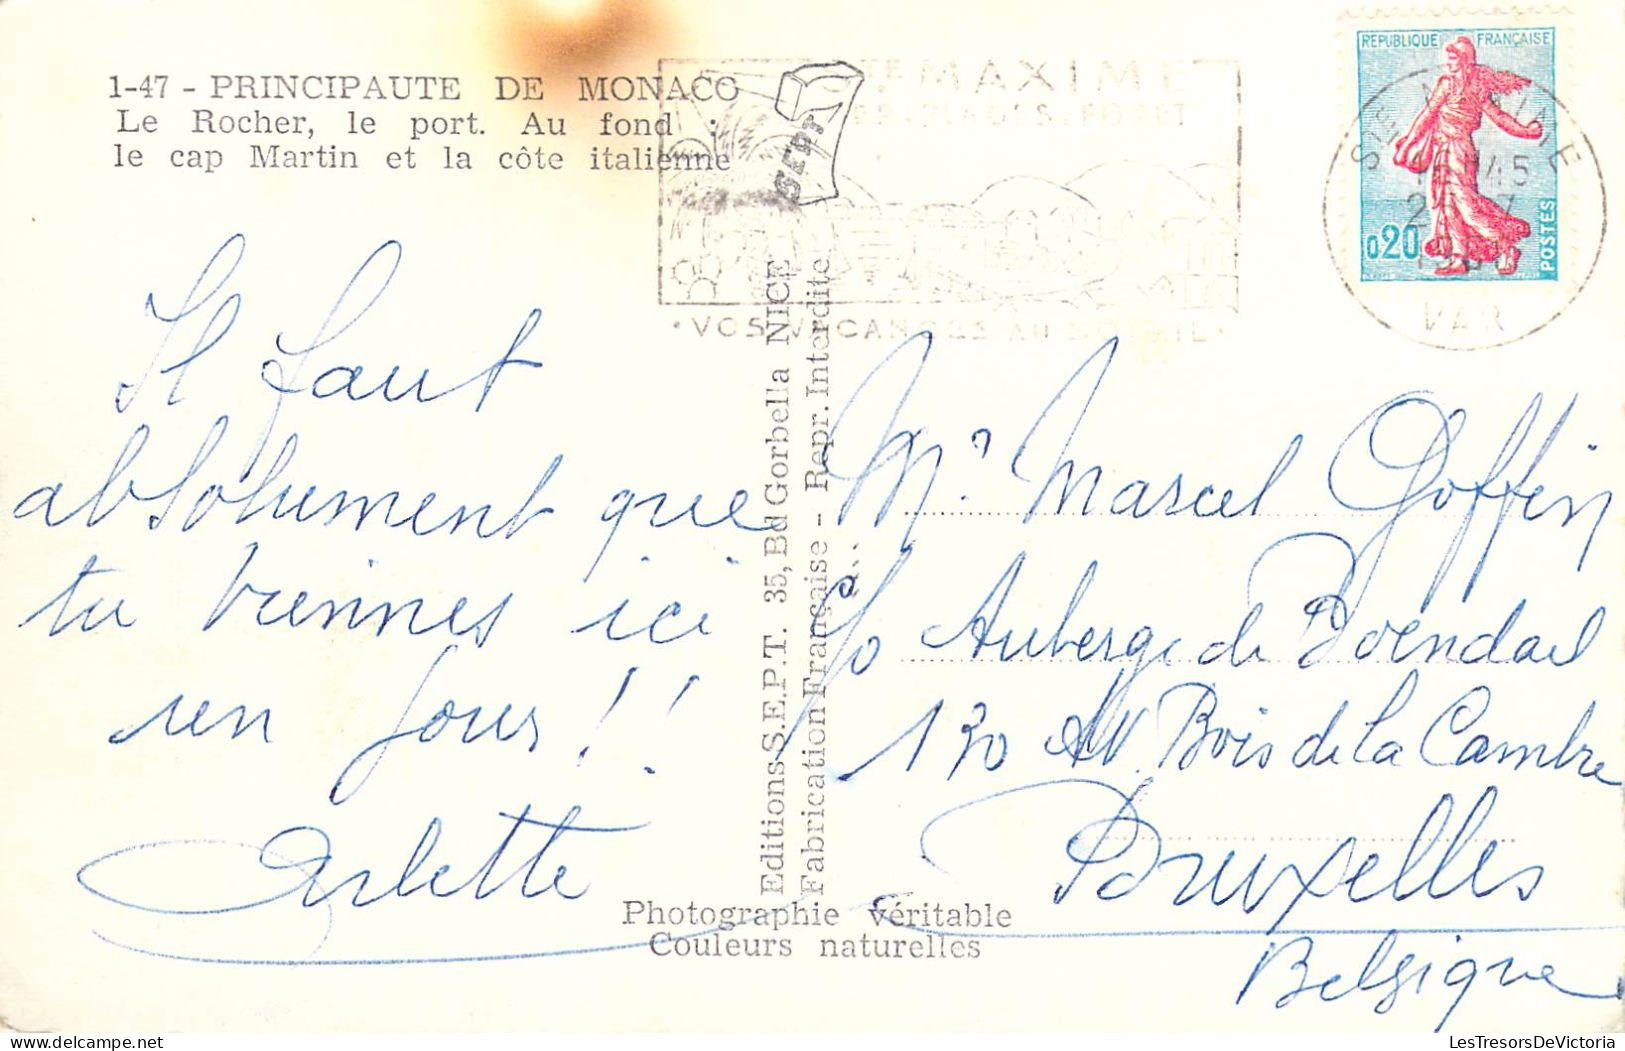 1-47 - PRINCIPAUTE DE MONACO
Le Rocher, le port. Au fond :
le cap Martin et la côte italienne
STE MAXIME
SES PLAGES FORET
• VOS VACANCES AU SOLEIL •
REPUBLIQUE FRANÇAISE
0,20
POSTES
STE MAXIME
16 H 45
VAR
Il faut
absolument que
tu viennes ici
un jour !!
Arlette
Editions S.E.P.T. 35, Bd Gorbella NICE
Fabrication Française - Repr. Interdite
Mr Marcel Goffin
c/o Auberge de Boendael
130 AV. Bois de La Cambre
Bruxelles
Belgique
Photographie véritable
Couleurs naturelles
LesTresorsDeVictoria.com